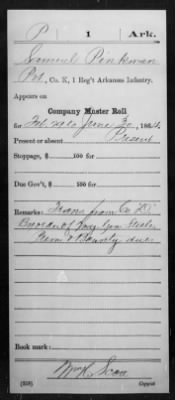 P | 1 | Ark.
Samuel Pinkman
Pvt, Co. K, 1 Reg't Arkansas Infantry.
Appears on
Company Muster Roll
for Feb 29 to June 30, 1864.
Present or absent Present
Stoppage, $ 100 for
Due Gov't, $ 100 for
Remarks: Trans from Co
Bounty due
Book mark:
Copyist